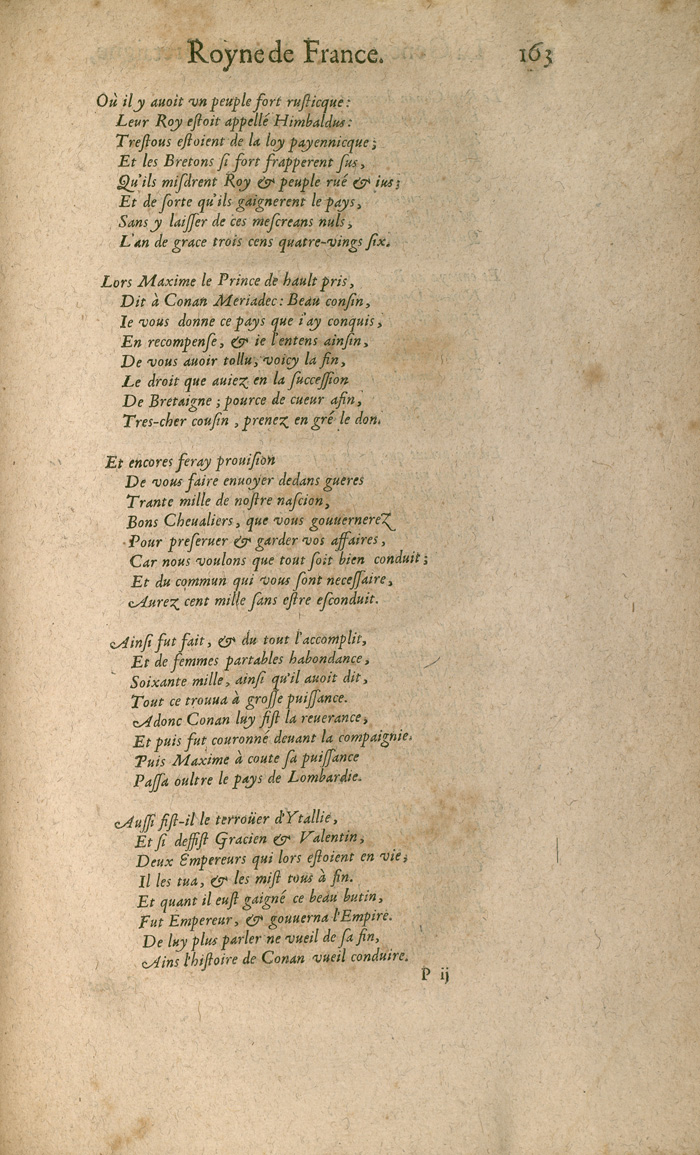 Royne de France. 163
Où il y auoit vn peuple fort ruſticque:
Leur Roy eſtoit appellé Himbaldus:
Treſtous eſtoient de la loy payennicque;
Et les Bretons ſi fort frapperent ſus,
Qu'ils miſdrent Roy & peuple rué & ius;
Et de ſorte qu'ils gaignerent le pays,
Sans y laiſſer de ces meſcreans nuls,
L'an de grace trois cens quatre-vings ſix.
Lors Maxime le Prince de hault pris,
Dit à Conan Meriadec: Beau conſin,
Ie vous donne ce pays que i'ay conquis,
En recompenſe, & ie l'entens ainſin,
De vous auoir tollu, voicy la fin,
Le droit que auiez en la ſucceſſion
De Bretaigne; pource de cueur afin,
Tres-cher couſin, prenez en gré le don.
Et encores feray prouiſion
De vous faire enuoyer dedans gueres
Trante mille de noſtre naſcion,
Bons Cheualiers, que vous gouuernerez
Pour preſeruer & garder vos affaires,
Car nous voulons que tout ſoit bien conduit;
Et du commun qui vous ſont neceſſaire,
Aurez cent mille ſans eſtre eſconduit.
Ainſi fut fait, & du tout l'accomplit,
Et de femmes partables habondance,
Soixante mille, ainſi qu'il auoit dit,
Tout ce trouua à groſſe puiſſance.
Adonc Conan luy fiſt la reuerance,
Et puis fut couronné deuant la compaignie.
Puis Maxime à toute ſa puiſſance
Paſſa oultre le pays de Lombardie.
Auſſi fiſt-il le terroüer d'Ytallie,
Et ſi deffiſt Gracien & Valentin,
Deux Empereurs qui lors eſtoient en vie;
Il les tua, & les miſt tous à fin.
Et quant il euſt gaigné ce beau butin,
Fut Empereur, & gouuerna l'Empire.
De luy plus parler ne vueil de ſa fin,
Ains l'hiſtoire de Conan vueil conduire.
P ij